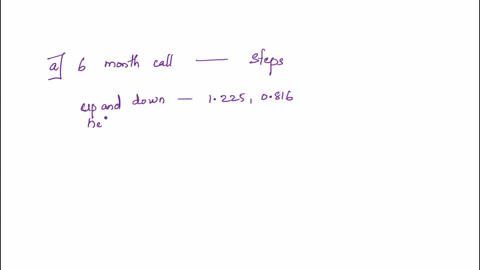 a] 6 month call — steps
up and down — 1.225, 0.816
he